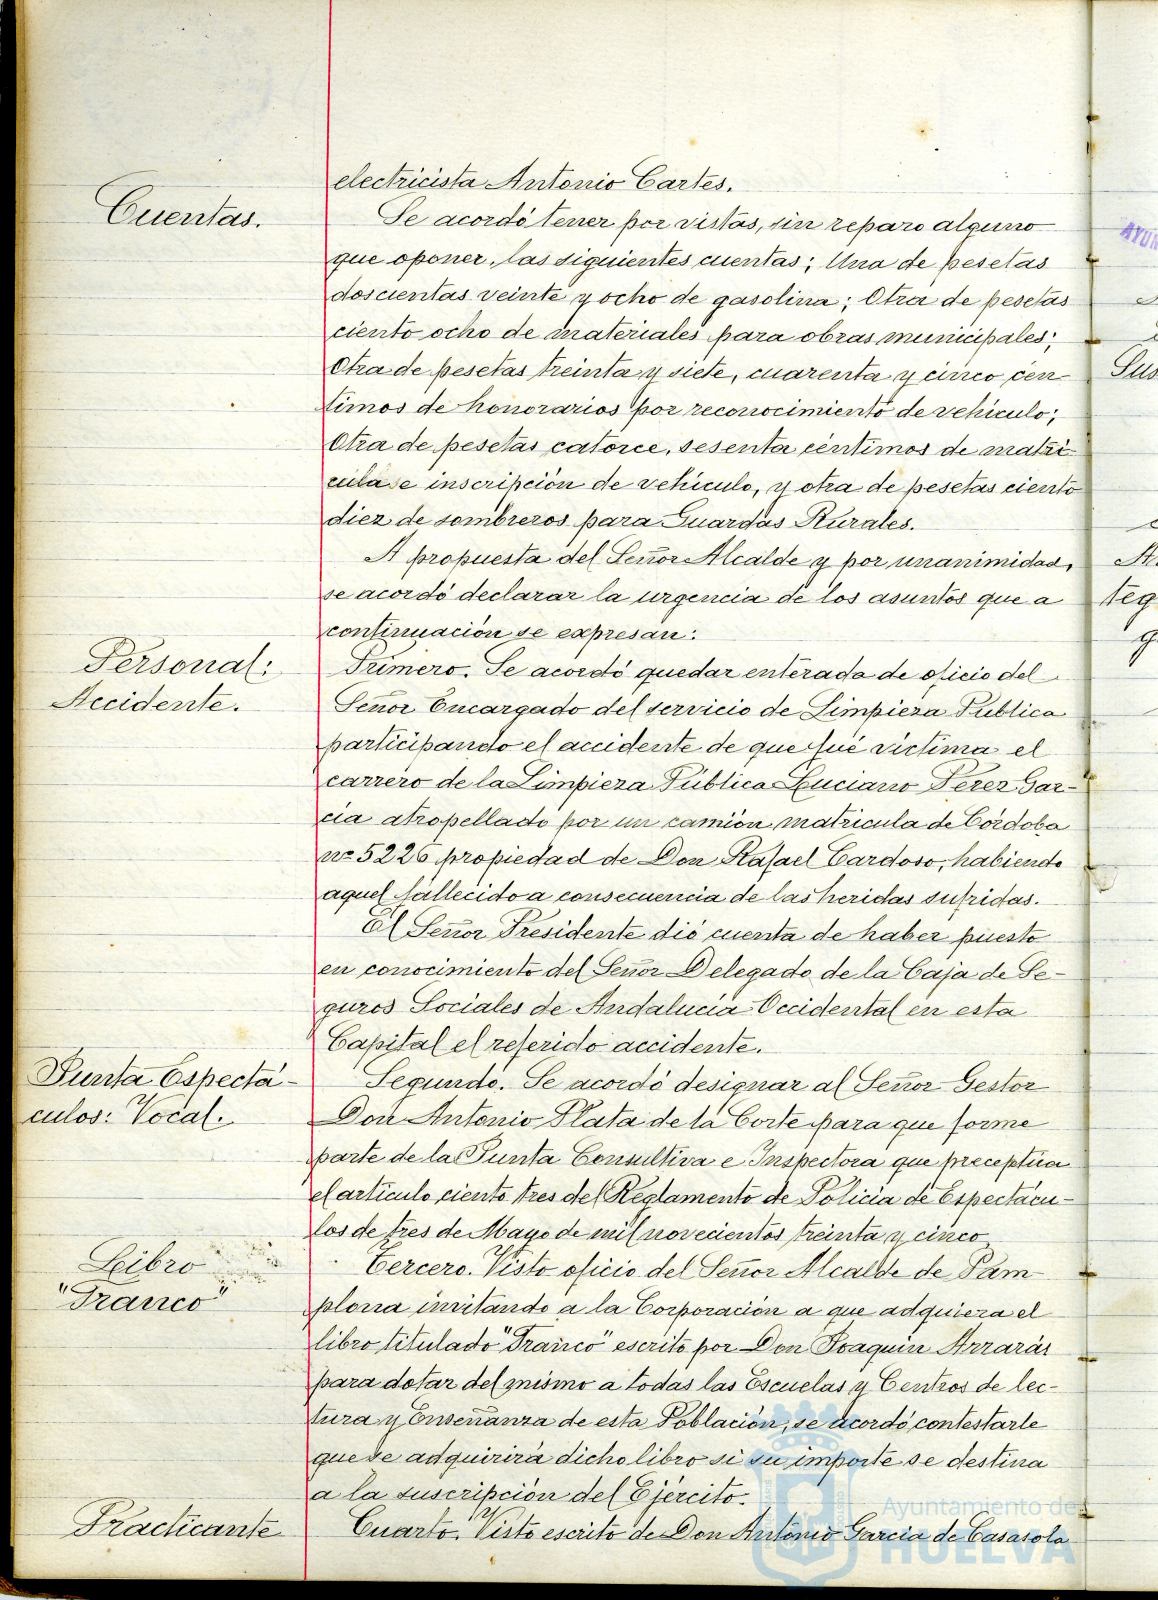 electricista Antonio Cartes.
Cuentas.
Se acordó tener por vistas, sin reparo alguno
que oponer, las siguientes cuentas; Una de pesetas
doscientas veinte y ocho de gasolina; Otra de pesetas
ciento ocho de materiales para obras municipales;
Otra de pesetas treinta y siete, cuarenta y cinco cén
timos de honorarios por reconocimiento de vehículo;
Otra de pesetas catorce, sesenta céntimos de matrí
cula e inscripción de vehículo, y otra de pesetas ciento
diez de sombreros para Guardas Rurales.
A propuesta del Señor Alcalde y por unanimidad,
se acordó declarar la urgencia de los asuntos que a
continuación se expresan:
Personal:
Accidente.
Primero. Se acordó quedar enterada de oficio del
Señor Encargado del servicio de Limpieza Pública
participando el accidente de que fué víctima el
carrero de la Limpieza Pública Luciano Pérez Gar-
cía atropellado por un camión matrícula de Córdoba
nº 5226 propiedad de Don Rafael Cardoso, habiendo
aquel fallecido a consecuencia de las heridas sufridas.
El Señor Presidente dió cuenta de haber puesto
en conocimiento del Señor Delegado de la Caja de Se-
guros Sociales de Andalucía Occidental en esta
Capital el referido accidente.
Junta Espectá-
culos: Vocal.
Segundo. Se acordó designar al Señor Gestor
Don Antonio Plata de la Corte para que forme
parte de la Junta Consultiva e Inspectora que preceptúa
el artículo ciento tres del Reglamento de Policía de Espectácu-
los de tres de Mayo de mil novecientos treinta y cinco
Libro
"Franco"
Tercero. Visto oficio del Señor Alcalde de Pam
plona invitando a la Corporación a que adquiera el
libro titulado "Franco" escrito por Don Joaquín Arrarás
para dotar del mismo a todas las Escuelas y Centros de lec-
tura y Enseñanza de esta Población, se acordó contestarle
que se adquirirá dicho libro si su importe se destina
a la suscripción del Ejército.
Practicante
Cuarto. Visto escrito de Don Antonio García de Casasola
Ayuntamiento de
HUELVA
AYUN
Sus